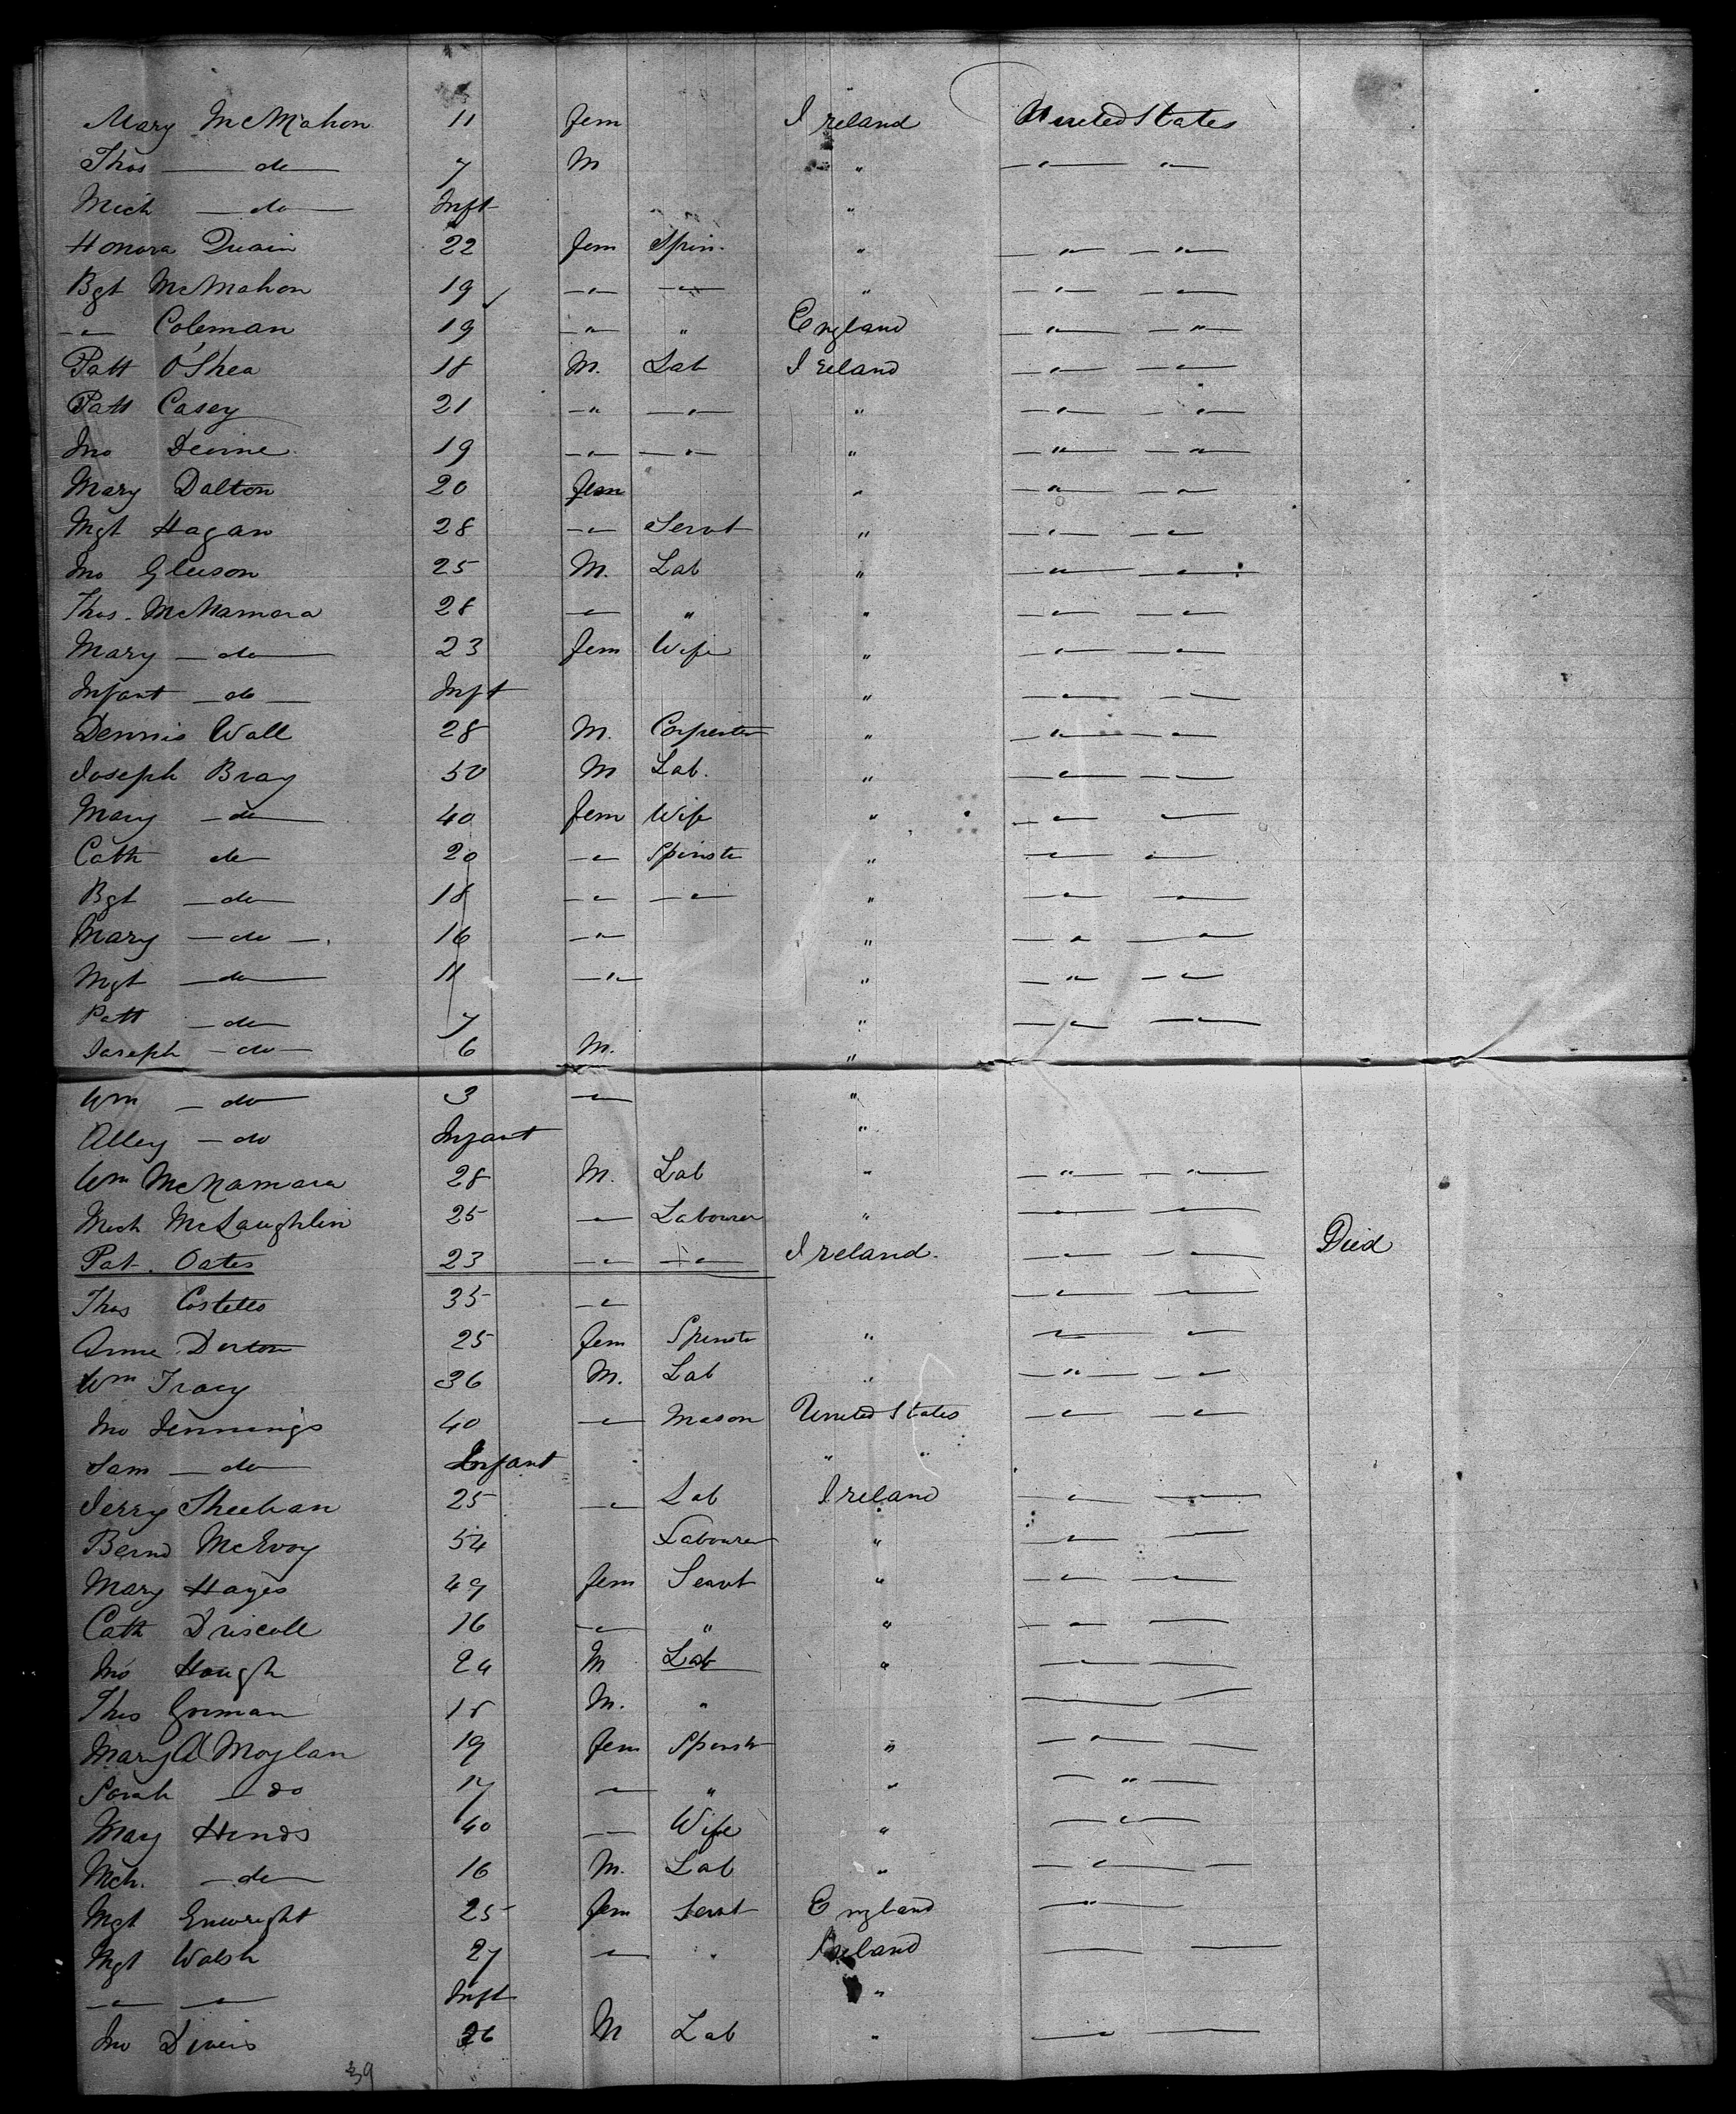 Mary McMahon 11 fem Ireland United States
Thos — do — 7 M " — " — " —
Mich — do — Inft "
Honora Quain 22 fem Spin. " — " — " —
Bgt McMahon 19 — " — — " — " — " — " —
— " — Coleman 19 — " — " England — " — " —
Patt O'Shea 18 M. Lab Ireland — " — " —
Patt Casey 21 — " — " — " — " — " —
Jno Devine 19 — " — — " — " — " — " —
Mary Dalton 20 fem " — " — " —
Mgt Hagan 28 — " Servt " — " — " —
Jno Gleeson 25 M. Lab " — " — " —
Thos. McNamara 28 — " — " " — " — " —
Mary — do — 23 fem Wife " — " — " —
Infant — do — Inft " — " — " —
Dennis Wall 28 M. Carpenter " — " — " —
Joseph Bray 50 M Lab. " — " — " —
Mary — do — 40 fem Wife " — " — " —
Cath do 20 — " Spinste " — " — " —
Bgt — do — 18 — " — — " — " — " — " —
Mary — do —. 16 — " — " — " — " —
Mgt — do — 11 — " — " — " — " —
Patt — do — 7 " — " — " —
Joseph — do — 6 M. "
Wm — do — 3 — " — "
Alley — do Infant "
Wm McNamara 28 M. Lab " — " — " —
Mich McLaughlin 25 — " — Labourer " — " — " —
Pat. Oates 23 — " — — " — Ireland. — " — " — Died
Thos Costello 35 — " — — " — " —
Anne Dorton 25 fem Spinste " — " — " —
Wm Tracy 36 M. Lab " — " — " —
Jno Jennings 40 — " — Mason United States — " — " —
Sam — do — Infant " "
Jerry Sheehan 25 — " — Lab Ireland — " — " —
Bernd McEvoy 54 Labourer " — " — —
Mary Hayes 49 fem Servt " — " — " —
Cath Driscoll 16 — " — " " — " — —
Jno Hough 24 M Lab " — " — —
Thos Gorman 18 M. " — —
Mary A Moylan 19 fem Spinster " — " — —
Sarah — do 17 — " — " " — " —
Mary Hinds 40 — Wife " — " —
Mch. — do — 16 M. Lab " — " — —
Mgt Enwright 25 fem Servt England — " —
Mgt Walsh 27 — " — " Ireland — —
— " — — " — Inft "
Jno 26 M Lab " — —
39